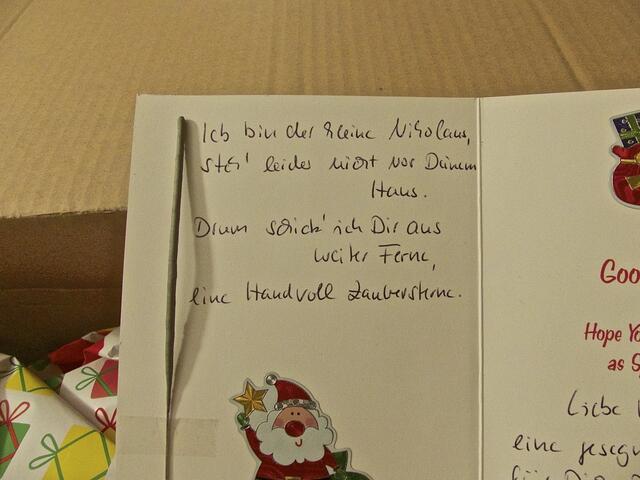 Ich bin der kleine Nikolaus,
steh' leider nicht vor Deinem
Haus.
Drum schick' ich Dir aus
weiter Ferne,
eine Handvoll Zaubersterne.
Hope
as
Liebe
eine
für